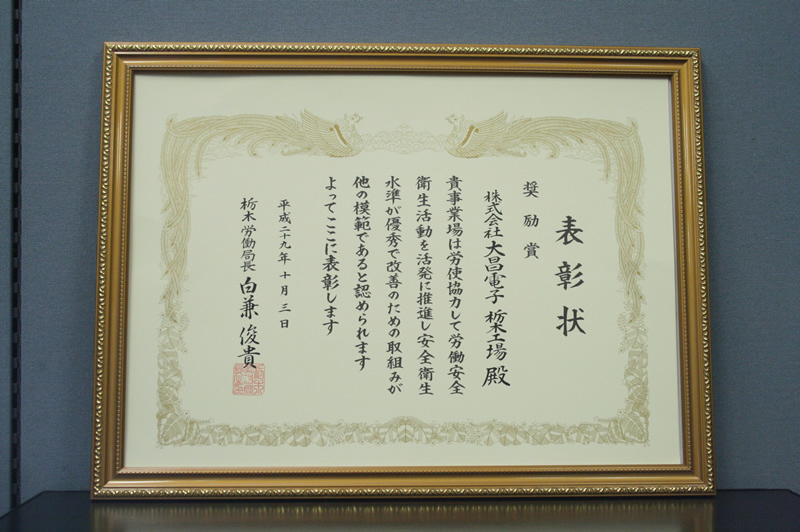 表彰状
奨励賞
株式会社 大昌電子 栃木工場 殿
貴事業場は労使協力して労働安全
衛生活動を活発に推進し安全衛生
水準が優秀で改善のための取組みが
他の模範であると認められます
よってここに表彰します
平成二十九年 十月 三日
栃木労働局長 白兼 俊貴